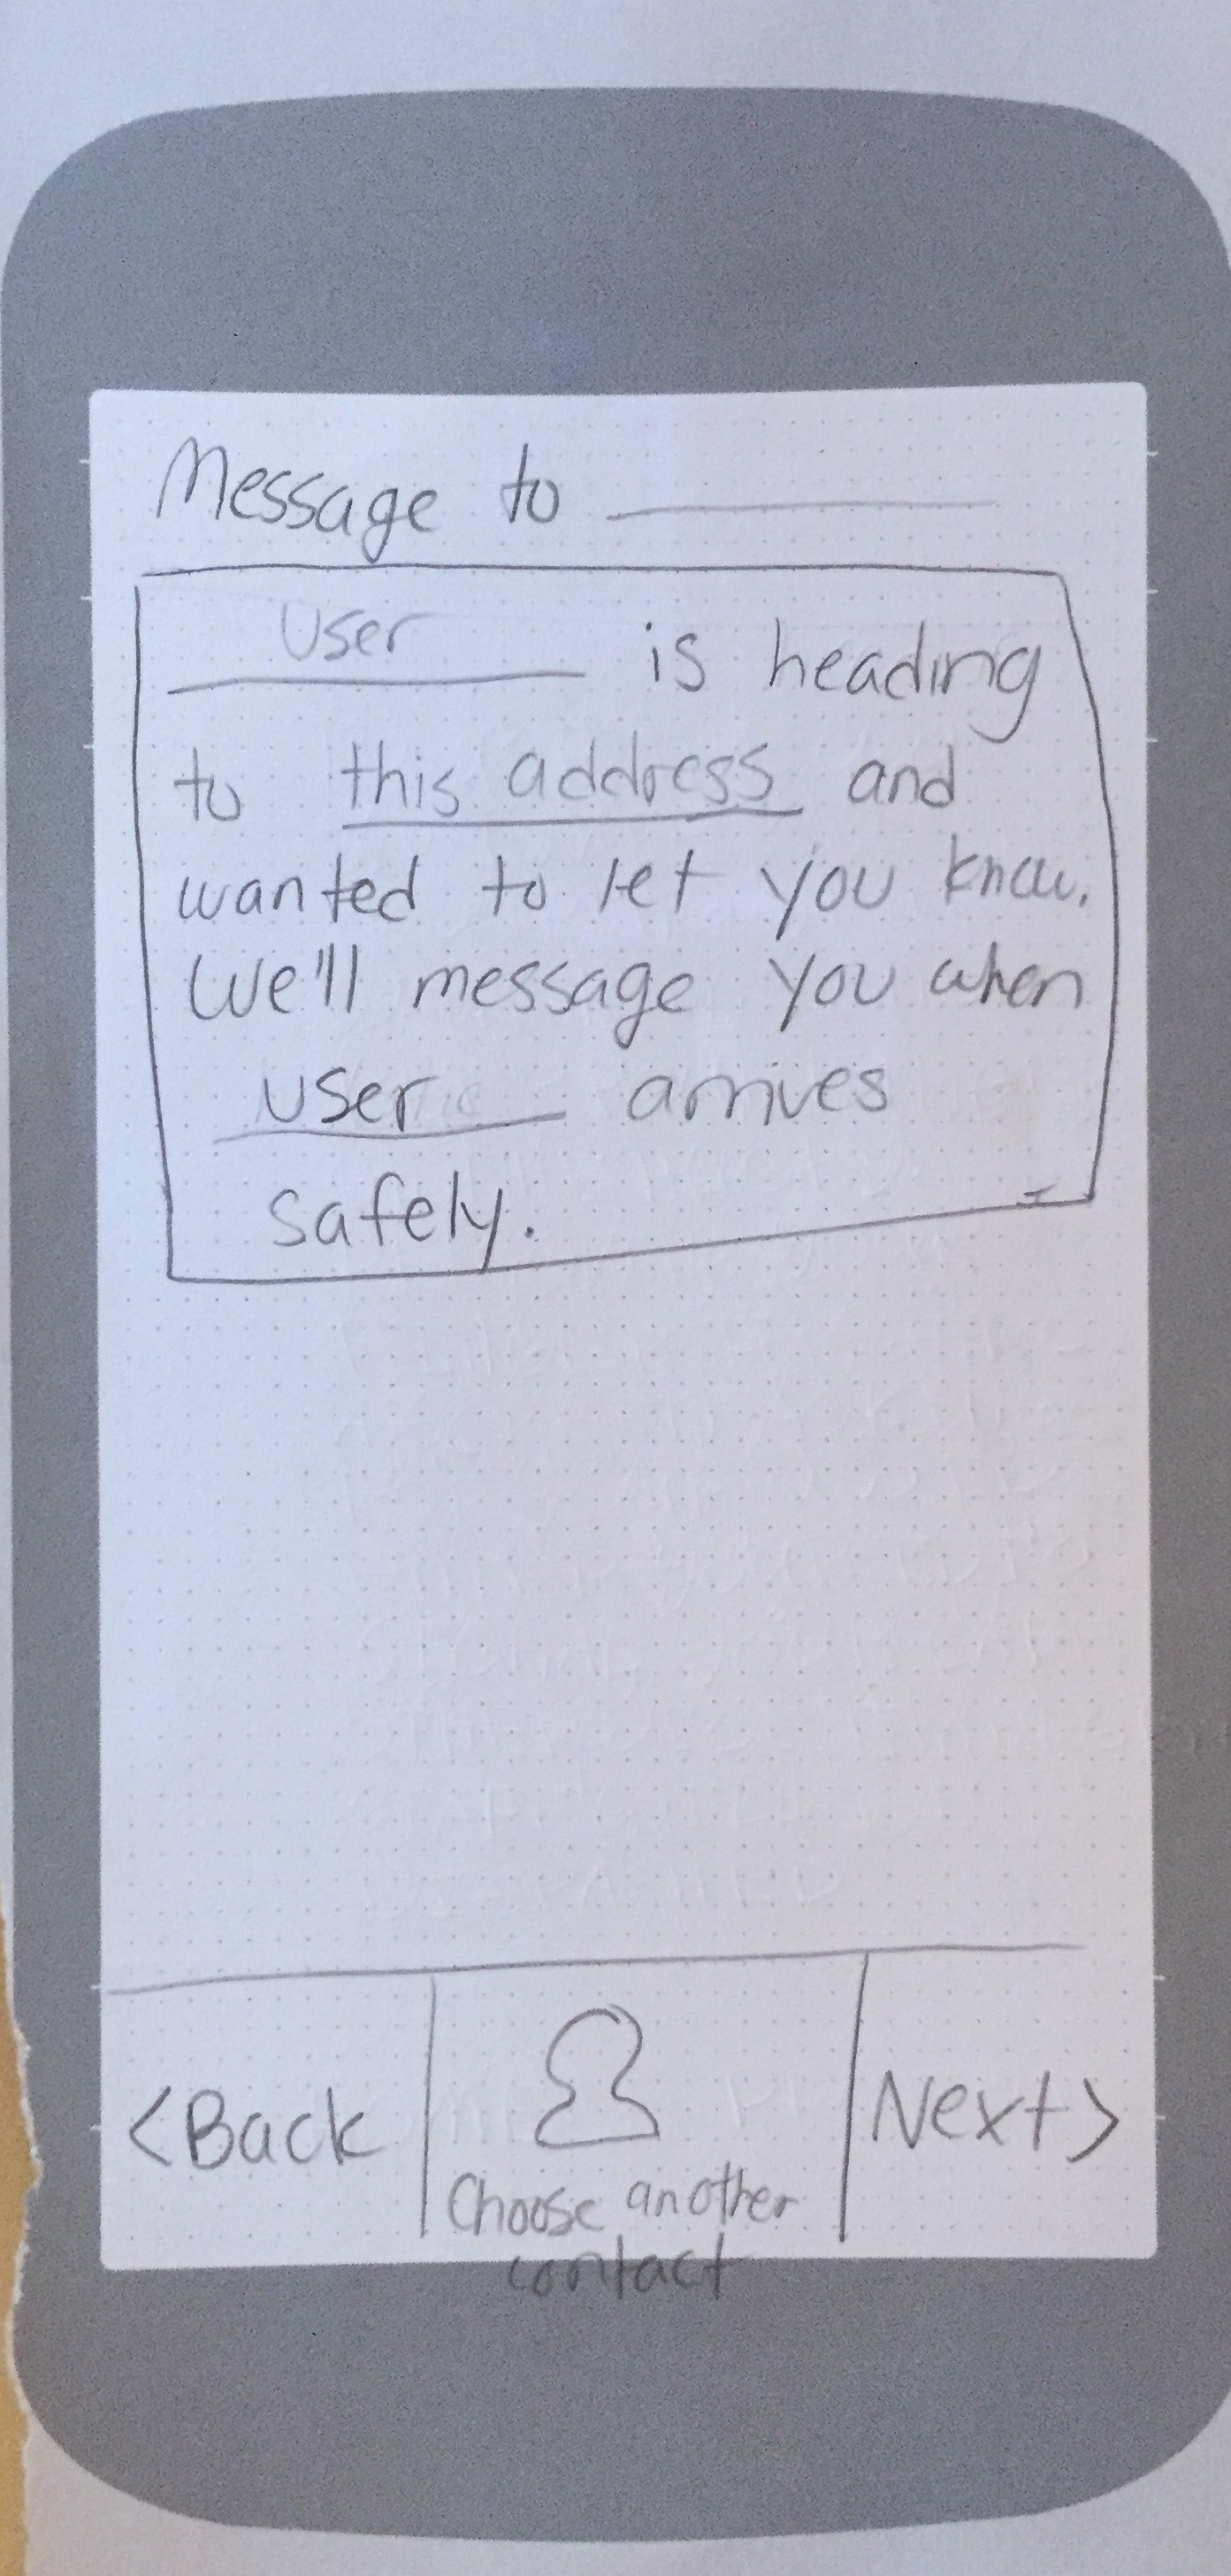 Message to
User is heading
to this address and
wanted to let you know.
We'll message you when
user arrives
safely.
<Back
Choose another
contact
Next>